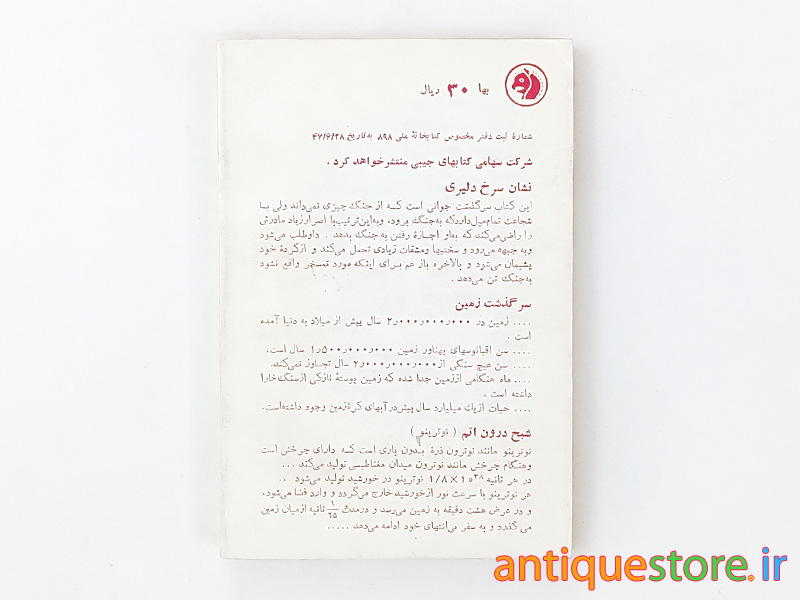 بها ۳۰ ریال
شمارهٔ ثبت دفتر مخصوص کتابخانهٔ ملی ۸۹۸ به تاریخ ۴۷/۶/۲۸
شرکت سهامی کتابهای جیبی منتشر خواهد کرد .
نشان سرخ دلیری
این کتاب سرگذشت جوانی است که از جنگ چیزی نمی‌داند ولی با
شجاعت تمام میل دارد که به جنگ برود، و به این ترتیب با اصرار زیاد مادرش
را راضی می‌کند که به او اجازهٔ رفتن به جنگ بدهد . داوطلب می‌شود
و به جبهه می‌رود و سختیها و مشقات زیادی تحمل می‌کند و از کردهٔ خود
پشیمان می‌شود و بالاخره باز هم برای اینکه مورد تمسخر واقع نشود
به جنگ تن می‌دهد .
سرگذشت زمین
.... زمین در ۲٫۰۰۰٫۰۰۰٫۰۰۰ سال پیش از میلاد به دنیا آمده
است .
.... سن اقیانوسهای پهناور زمین ۱٫۵۰۰٫۰۰۰٫۰۰۰ سال است.
.... سن هیچ سنگی از ۲٫۰۰۰٫۰۰۰٫۰۰۰ سال تجاوز نمی‌کند.
.... ماه هنگامی از زمین جدا شده که زمین پوستهٔ نازکی از سنگ خارا
داشته است .
.... حیات از یک میلیارد سال پیش در آبهای کرهٔ زمین وجود داشته است.
شبح درون اتم ( نوترینو )
نوترینو مانند نوترون ذرهٔ بدون باری است که دارای چرخش است
و هنگام چرخش مانند نوترون میدان مغناطیسی تولید می‌کند ...
در هر ثانیه ۱/۸×۱۰۳۸ نوترینو در خورشید تولید می‌شود ...
هر نوترینو با سرعت نور از خورشید خارج می‌گردد و وارد فضا می‌شود،
و در عرض هشت دقیقه به زمین می‌رسد و در مدت ۱/۲۵ ثانیه از میان زمین
می گذرد و به سفر بی‌انتهای خود ادامه می‌دهد .....
antiquestore.ir